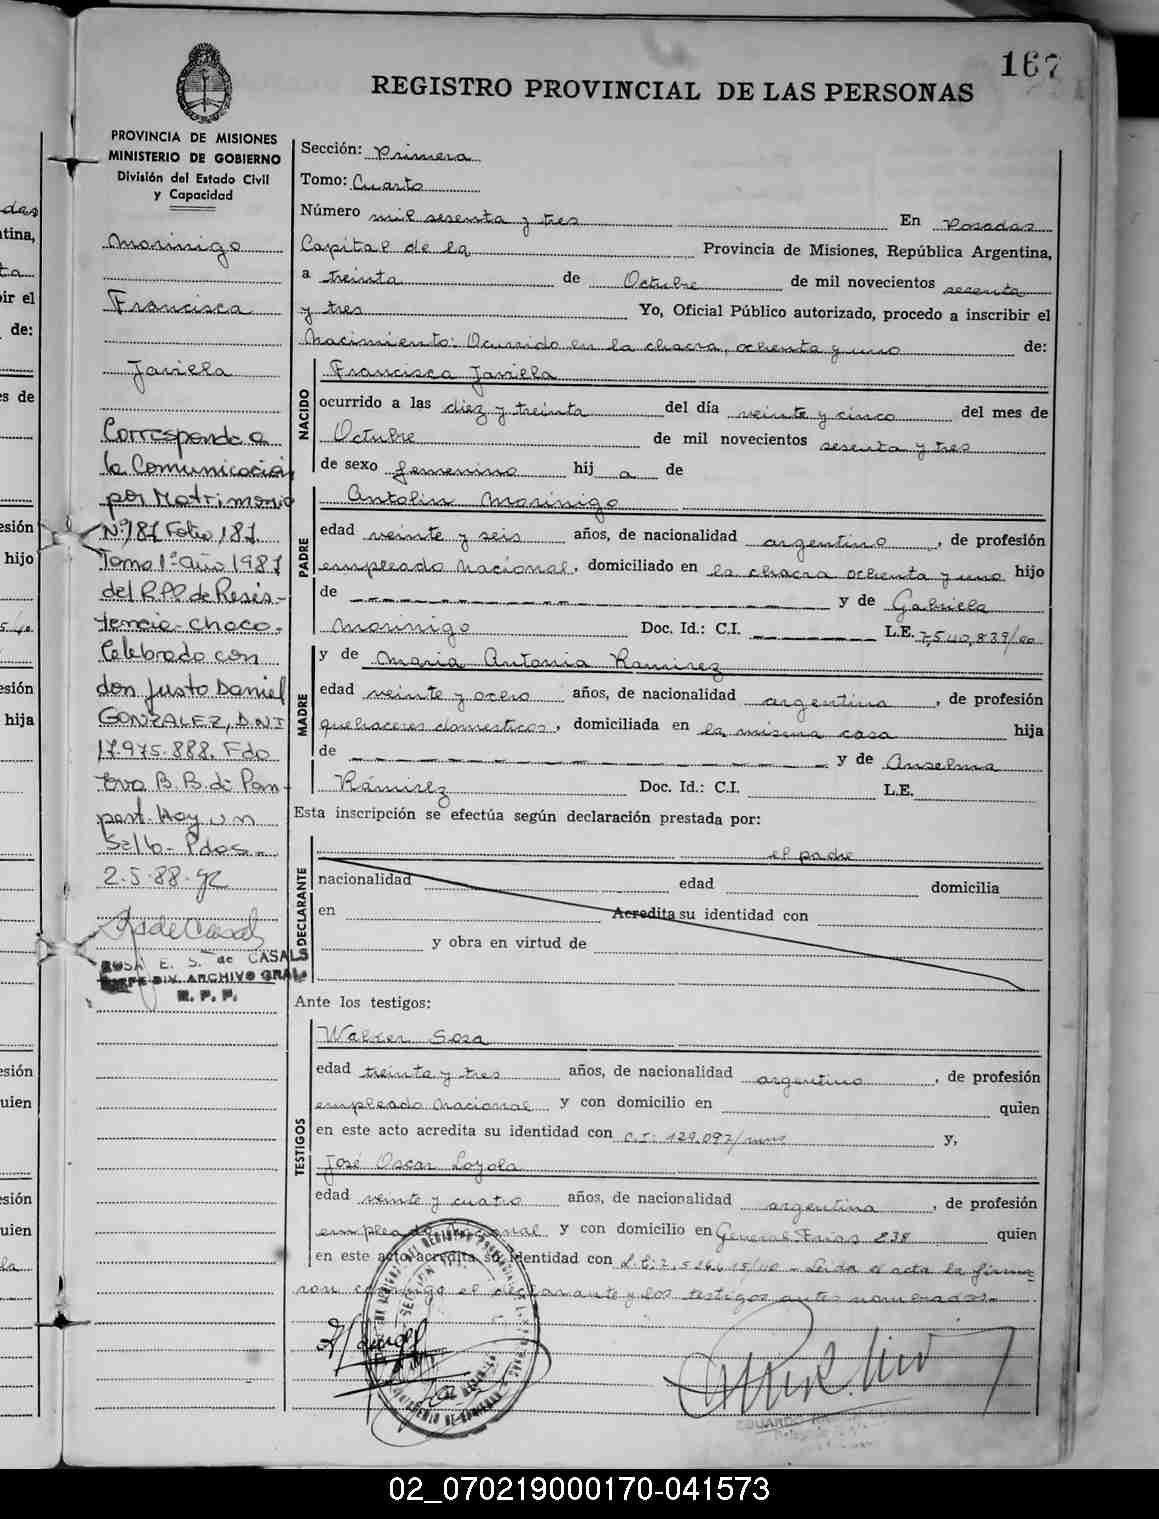 167
REGISTRO PROVINCIAL DE LAS PERSONAS
PROVINCIA DE MISIONES
MINISTERIO DE GOBIERNO
División del Estado Civil
y Capacidad
Morinigo
Francisca
Javiela
Corresponde a
la Comunicación
por Matrimonio
Nº 187 Folio 187
Tomo 1º Año 1987
del RPP de Resis-
tencia-Chaco.
Celebrado con
don Justo Daniel
GONZALEZ, D.N.I
17.975.888. Fdo
Eva B. B. de
Hay un
Sello-Pdas.
2-5-88-
ROSA E. S. de CASALS
JEFE DIV. ARCHIVO GRAL.
R. P. P.
Sección: Primera
Tomo: Cuarto
Número mil sesenta y tres En Posadas
Capital de la Provincia de Misiones, República Argentina,
a treinta de Octubre de mil novecientos sesenta
y tres Yo, Oficial Público autorizado, procedo a inscribir el
Nacimiento: Ocurrido en la chacra, ochenta y uno de:
NACIDO
Francisca Javiela
ocurrido a las diez y treinta del día veinte y cinco del mes de
Octubre de mil novecientos sesenta y tres
de sexo femenino hij a de
PADRE
Antolin Morinigo
edad veinte y seis años, de nacionalidad argentino, de profesión
empleado Nacional, domiciliado en la chacra ochenta y uno hijo
de y de Gabriela
Morinigo Doc. Id.: C.I. L.E. 7,540,839/
MADRE
y de Maria Antonia Ramirez
edad veinte y ocho años, de nacionalidad argentina, de profesión
quehaceres domesticos, domiciliada en la misma casa hija
de y de Anselma
Rámirez Doc. Id.: C.I. L.E.
Esta inscripción se efectúa según declaración prestada por:
DECLARANTE
el padre
nacionalidad edad domicilia
en Acredita su identidad con
y obra en virtud de
Ante los testigos:
TESTIGOS
Walter Sosa
edad treinta y tres años, de nacionalidad argentino, de profesión
empleado Nacional y con domicilio en quien
en este acto acredita su identidad con C.I: 129.097/ y,
José Oscar Loyola
edad veinte y cuatro años, de nacionalidad argentina, de profesión
empleado Nacional y con domicilio en General Frias 838 quien
en este acto acredita su identidad con Leida el acta la firma
ron conmigo el declarante y los testigos antes nomerados.
02_070219000170-041573